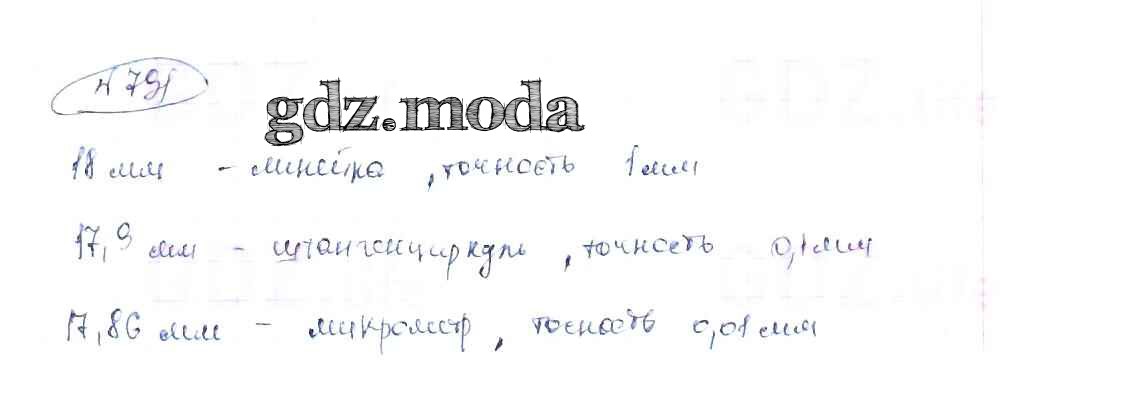 № 791
gdz.moda
18 мм - линейка, точность 1 мм
17,9 мм - штангенциркуль, точность 0,1 мм
17,86 мм - микрометр, точность 0,01 мм